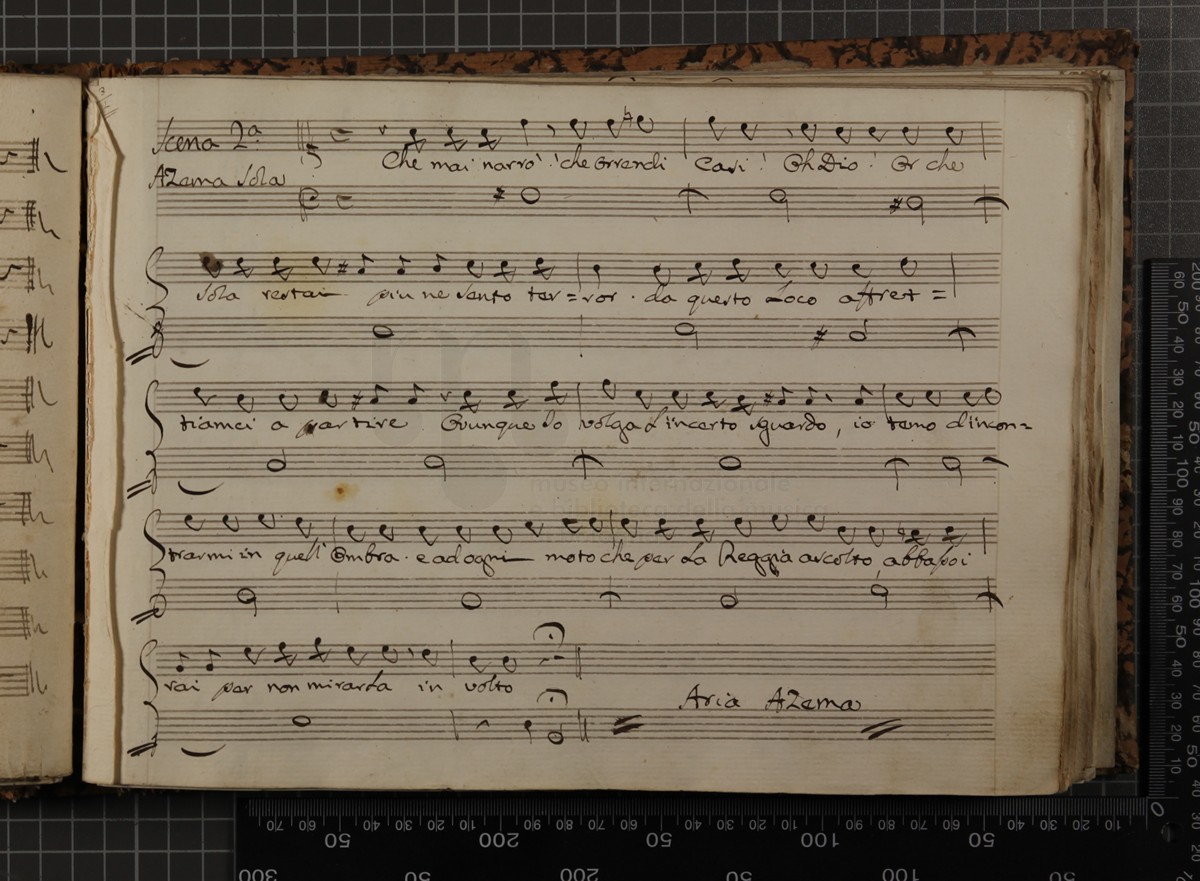 Scena 2ª
Che mai narrò! che orrendi Casi! Oh Dio! Or che
AZema Sola
Sola restai più ne sento ter=ror. da questo Loco affret=
tiamci a partire Ovunque Lo volga L'incerto sguardo, io temo d'incon=
museo internazionale
e biblioteca della musica
trarmi in quell' Ombra. e ad ogni moto che per La Reggia ascolto, abba
rai per non mirarla in volto
Aria AZema